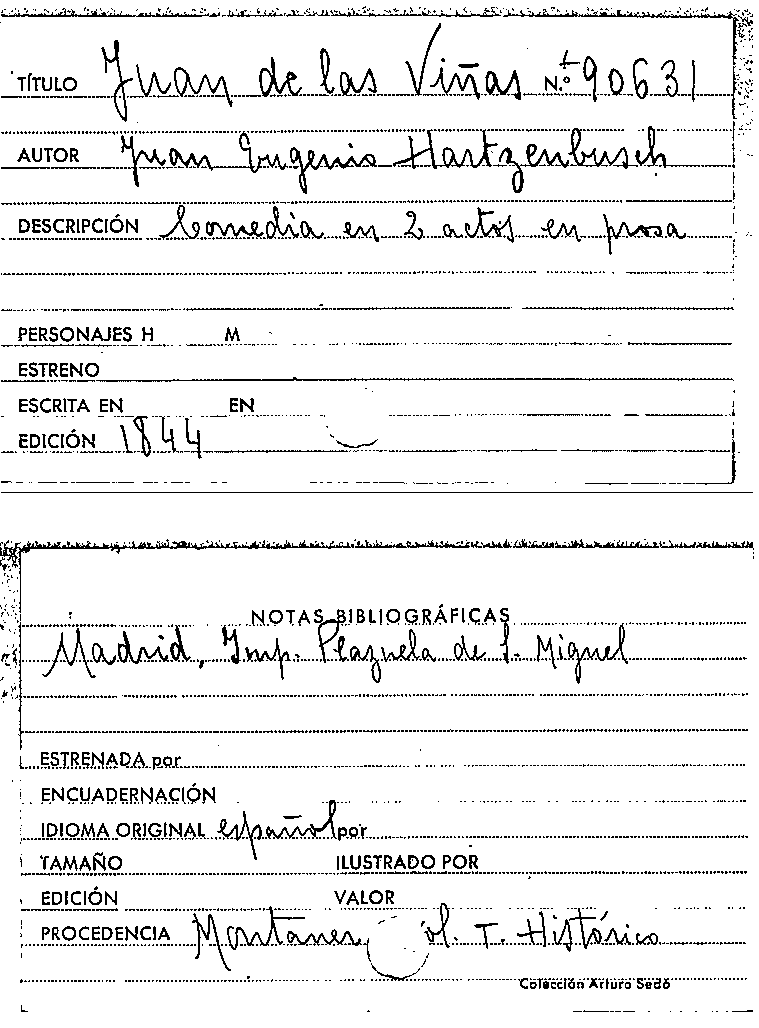 TÍTULO Juan de las Viñas N.º 90631
AUTOR Juan Eugenio Hartzenbusch
DESCRIPCIÓN Comedia en 2 actos en prosa
PERSONAJES H M
ESTRENO
ESCRITA EN EN
EDICIÓN 1844
NOTAS BIBLIOGRÁFICAS
Madrid, Imp. Plazuela de S. Miguel
ESTRENADA por
ENCUADERNACIÓN
IDIOMA ORIGINAL español por
TAMAÑO ILUSTRADO POR
EDICIÓN VALOR
PROCEDENCIA Montaner, ol. T. Histórico
Colección Arturo Sedó